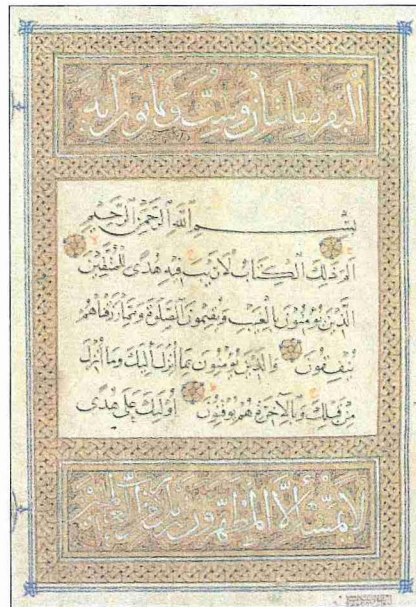 البقرة مائتان وست وثمانون آية
بسم الله الرحمن الرحيم
الم ذلك الكتاب لا ريب فيه هدى للمتقين
الذين يؤمنون بالغيب ويقيمون الصلوة ومما رزقناهم
ينفقون والذين يؤمنون بما أنزل إليك وما أنزل
من قبلك وبالآخرة هم يوقنون أولئك على هدى
لا يمسه إلا المطهرون تنزيل من رب العالمين